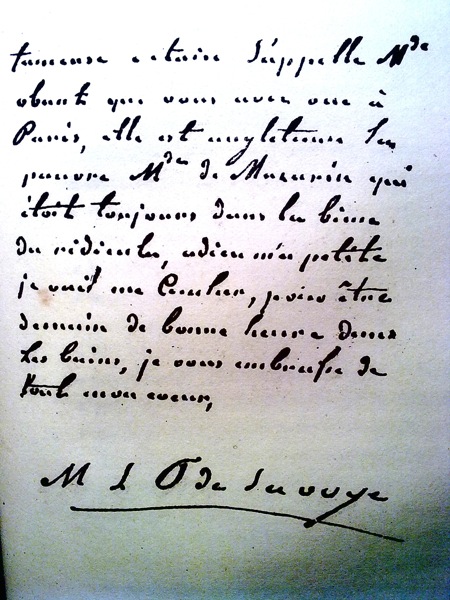 fameuse actrice s'appelle Mde
obant que vous avez vue à
Paris, elle est angleterre la
pauvre Mde de Mazarin qui
étoit toujours dans la bime
du ridicule, adieu m'a petite
je vait me Coucher, pour être
demain de bonne heure dans
Les bains, je vous embrasse de
tout mon coeur,
M L O de Savoye